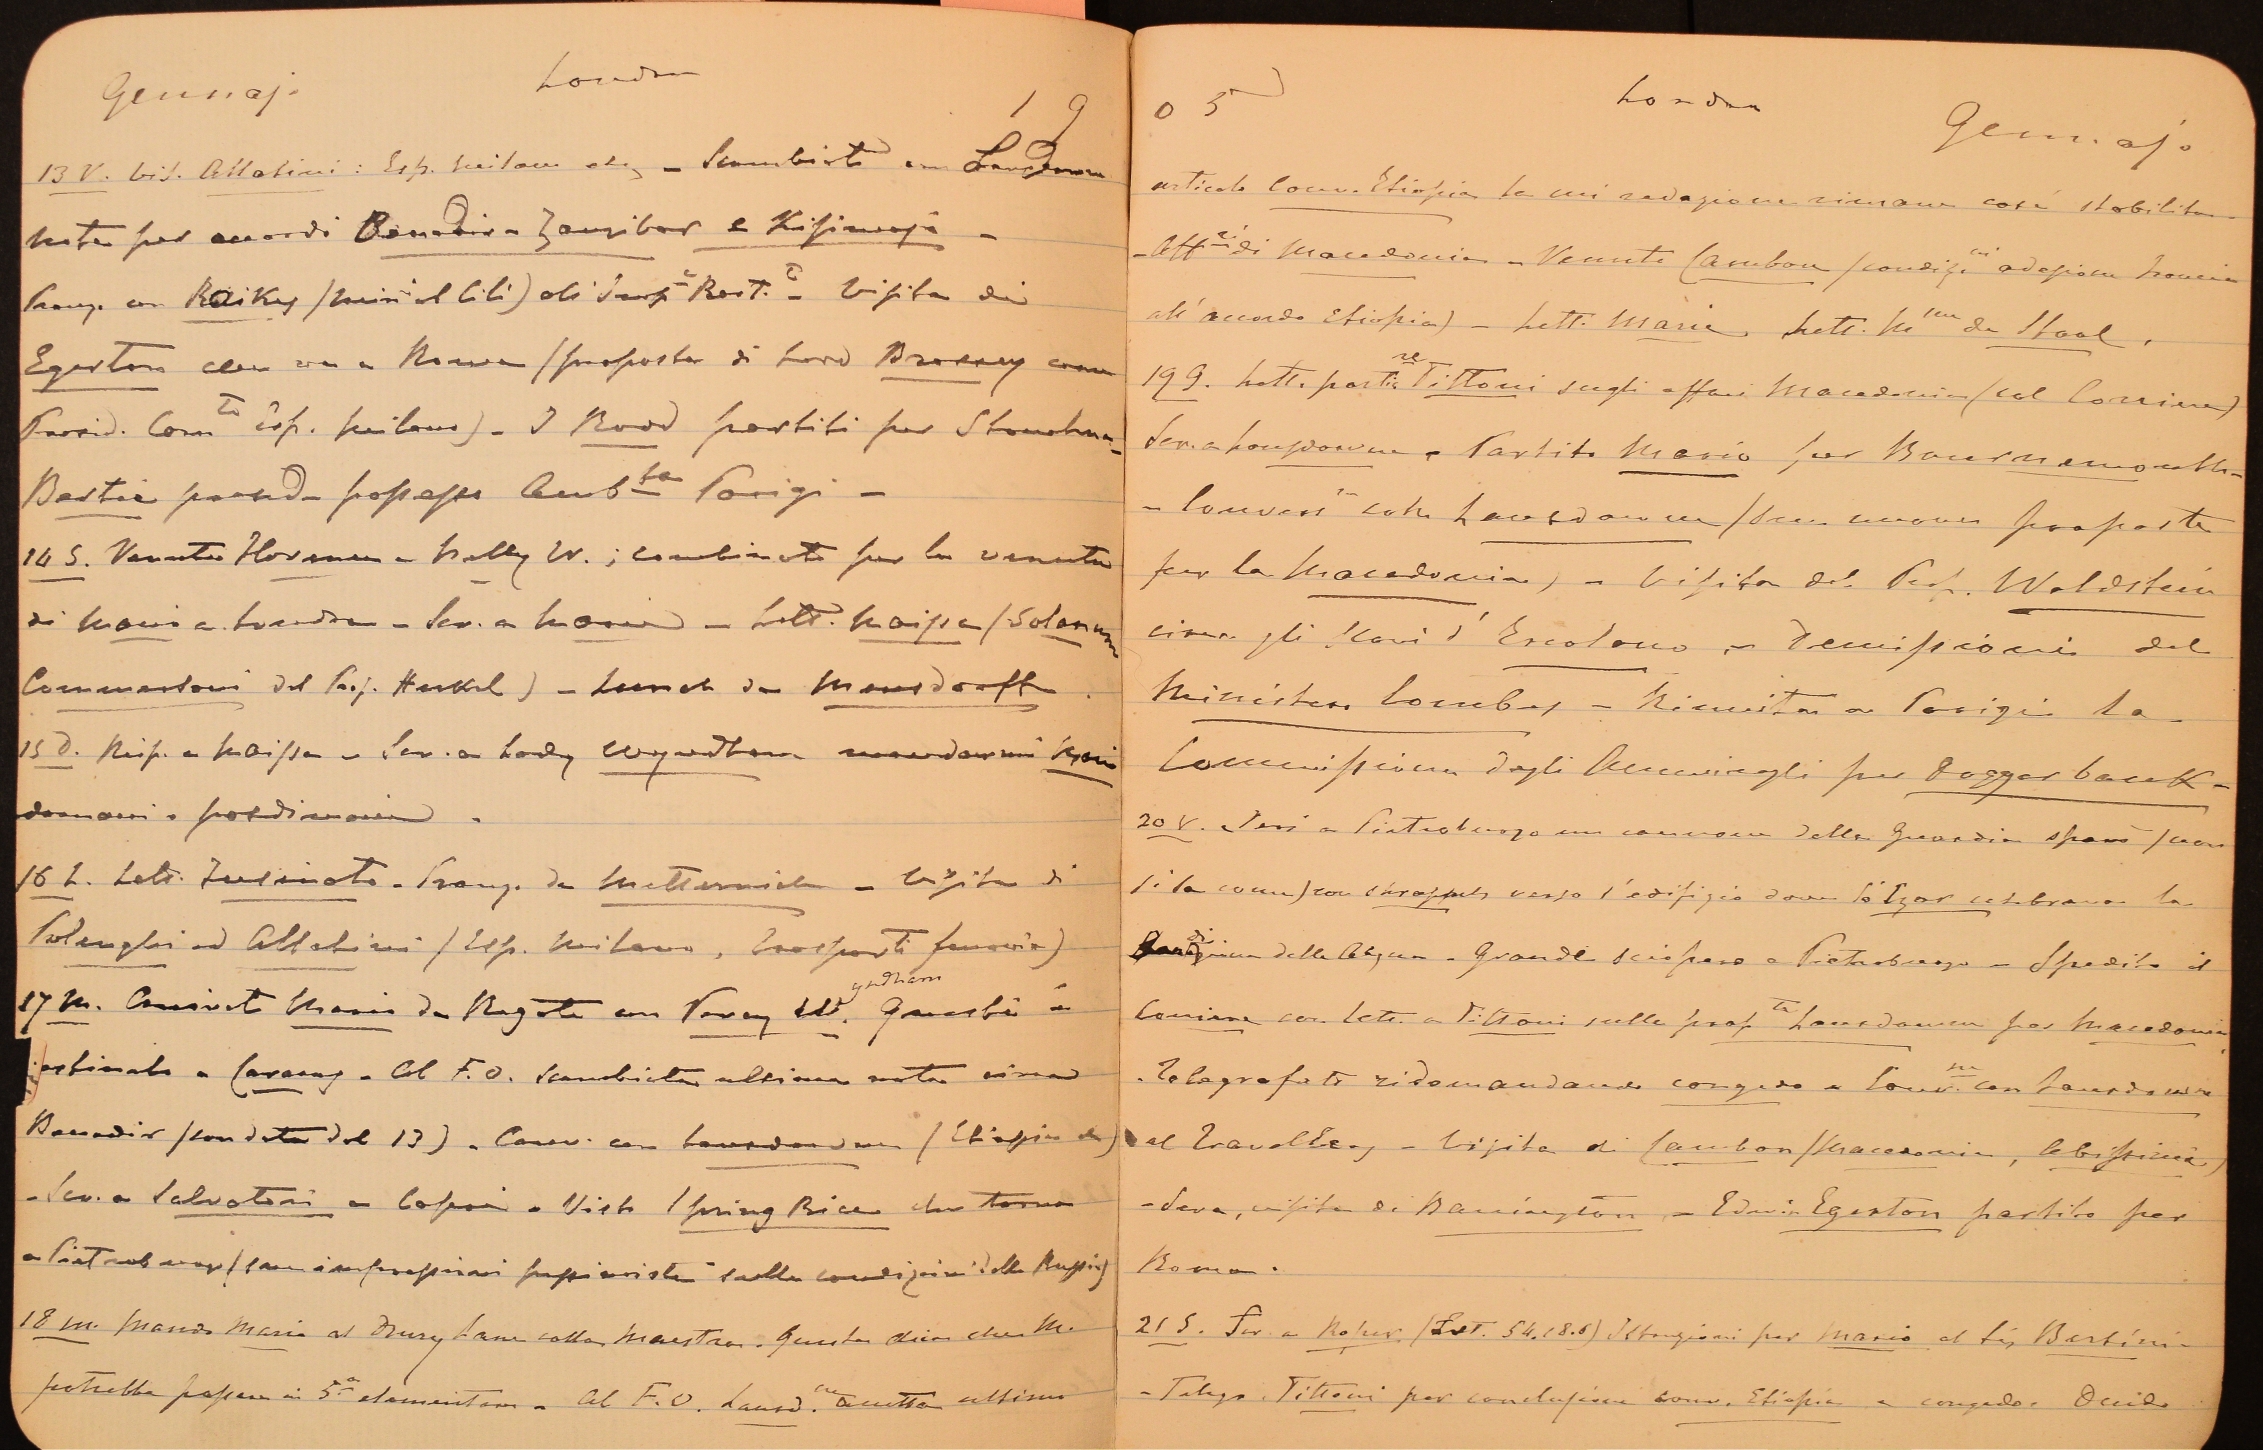 Gennajo Londra 19
13 V. Vis. Allatini: Esp. Milano etc - Scambiate con Lansdowne
note per accordi Benadir - Zanzibar e Kisimajo -
Pranz. con Raikes (min. al Cilì) all' Imp. Rest. - Visita di
Egerton che va a Roma (proposta di Lord Brassey come
Presid. Com.to Esp. Milano) - I Rodd partiti per
Bertie prende possesso Amb.ta Parigi -
14 S. Venute Florence - Nelly W.; combinato per la venuta
di Mario a Londra - Scr. a Mario - Lett. Maissa (Solanum
Commersoni del Prof. Heckel) - Lunch da Mensdorff.
15 D. Risp. a Maissa - Scr. a Lady Wyndham mandarmi Mario
domani o posdimani.
16 L. Lett. Fusinato - Pranz. da Metternich - Visita di
Polenghi ed Allatini (Esp. Milano, trasporti ferrovia)
17 M. Arrivato Mario da Rogate con Percy Wyndham. Questi è
a - Al F.O. scambiata ultima nota circa
Benadir (con data del 13) - Conv. con Lansdowne (Etiopia etc)
- Scr. a Salvatori a Capri - Visto Spring Rice che torna
a Pietroburgo (sue impressioni pessimiste sulle condizioni della Russia)
18 M. Mando Mario al Drury Lane colla Maestra. Questa dice che M.
potrebbe passare in 5a elementare - Al F.O. Lansd.ne accetta ultimo
05 Londra Gennajo
articolo Conv. Etiopia la cui redazione rimane così stabilita -
- Aff.ri di Macedonia - Venuto Cambon (condiz.ni adesione Francia
all' accordo Etiopia) - Lett. Maria Lett. M.me de Staal.
19 G. Lett. partic.re Tittoni sugli affari Macedonia (col Corriere)
Scr. a Lansdowne - Partito Mario per Bournemouth -
- Convers.ne con Lansdowne (sue nuove proposte
per la Macedonia) - Visita del Prof. Waldstein
circa gli scavi d' Ercolano - Demissioni del
Ministero Combes - Riunita a Parigi la
Commissione degli Ammiragli per Doggerbank -
20 V. Ieri a Pietroburgo un cannone della Guardia sparò (non
si sa come) con shrapnels verso l'edifizio dove lo Czar celebrava la
Benedizione delle Acque - Grande sciopero a Pietroburgo - Spedito il
Corriere con lett. a Tittoni sulle prop.te Lansdowne per Macedonia
- Telegrafato ridomandando congedo - Conv.ne con Lansdowne
al Travellers - Visita di Cambon (Macedonia, Abissinia)
- Sera, visita di Barrington - Edwin Egerton partito per
Roma.
21 S. Scr. a Roher (Lst. 54.18.6) Istruzioni per Mario al Sig. Bertini -
- Telegr. Tittoni per conclusione conv. Etiopia e congedo. Decido